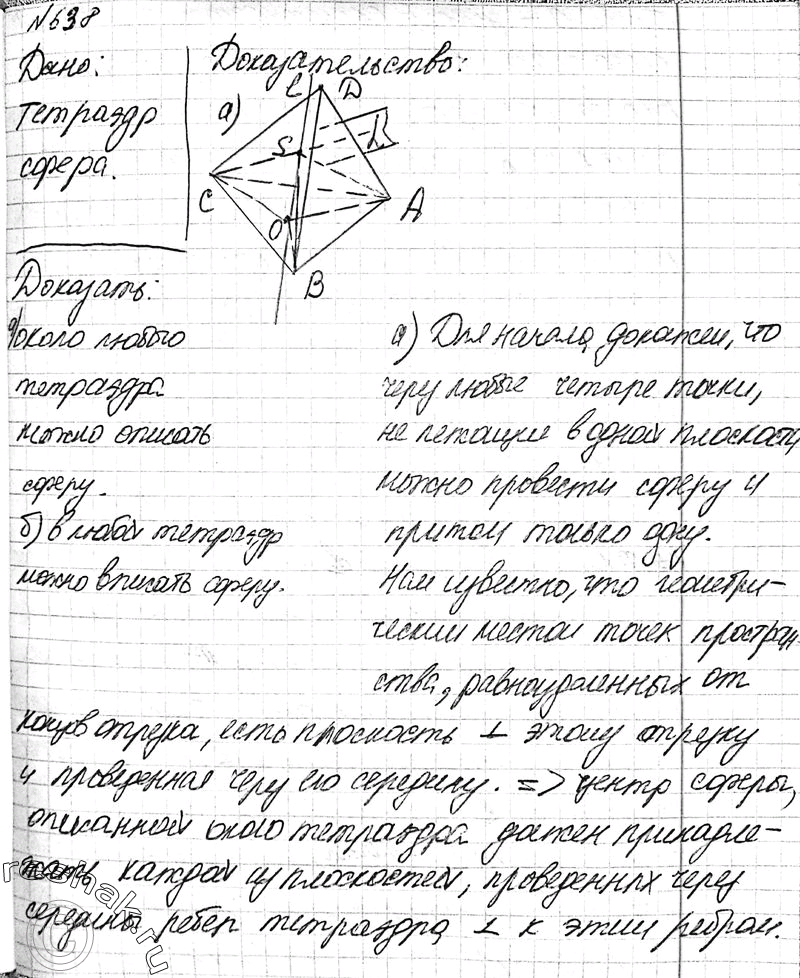 №638
Дано:
тетраэдр
сфера.
Доказательство:
а)
ℓ D
S
α
C
A
O
B
Доказать:
а) около любого
тетраэдра
можно описать
сферу.
б) в любой тетраэдр
можно вписать сферу.
а) Для начала докажем, что
через любые четыре точки,
не лежащие в одной плоскости
можно провести сферу и
притом только одну.
Нам известно, что геометри-
ческим местом точек простран-
ства, равноудаленных от
концов отрезка, есть плоскость ⊥ этому отрезку
и проведенная через его середину. => центр сферы,
описанной около тетраэдра должен принадле-
жать каждой из плоскостей, проведенных через
середины ребер тетраэдра ⊥ к этим ребрам.
reshak.ru